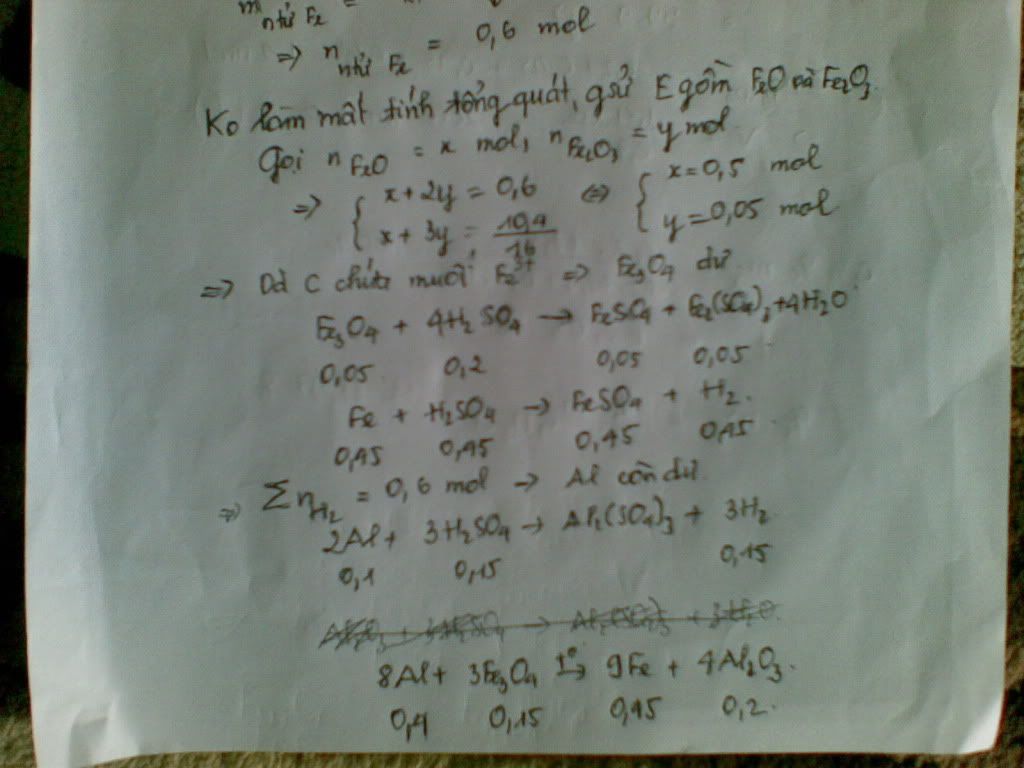 m ntử Fe =
=> n ntử Fe = 0,6 mol
Ko làm mất tính tổng quát, gsử E gồm FeO và Fe2O3.
Gọi n FeO = x mol, n Fe2O3 = y mol
=> { x + 2y = 0,6 <=> { x = 0,5 mol
x + 3y = 10,4/16 y = 0,05 mol
=> Dd C chứa muối Fe3+ => Fe3O4 dư
Fe3O4 + 4H2SO4 → FeSO4 + Fe2(SO4)3 + 4H2O
0,05 0,2 0,05 0,05
Fe + H2SO4 → FeSO4 + H2.
0,45 0,45 0,45 0,45
=> ΣnH2 = 0,6 mol → Al còn dư
2Al + 3H2SO4 → Al2(SO4)3 + 3H2
0,1 0,15 0,15
8Al + 3Fe3O4 t°→ 9Fe + 4Al2O3.
0,4 0,15 0,45 0,2.